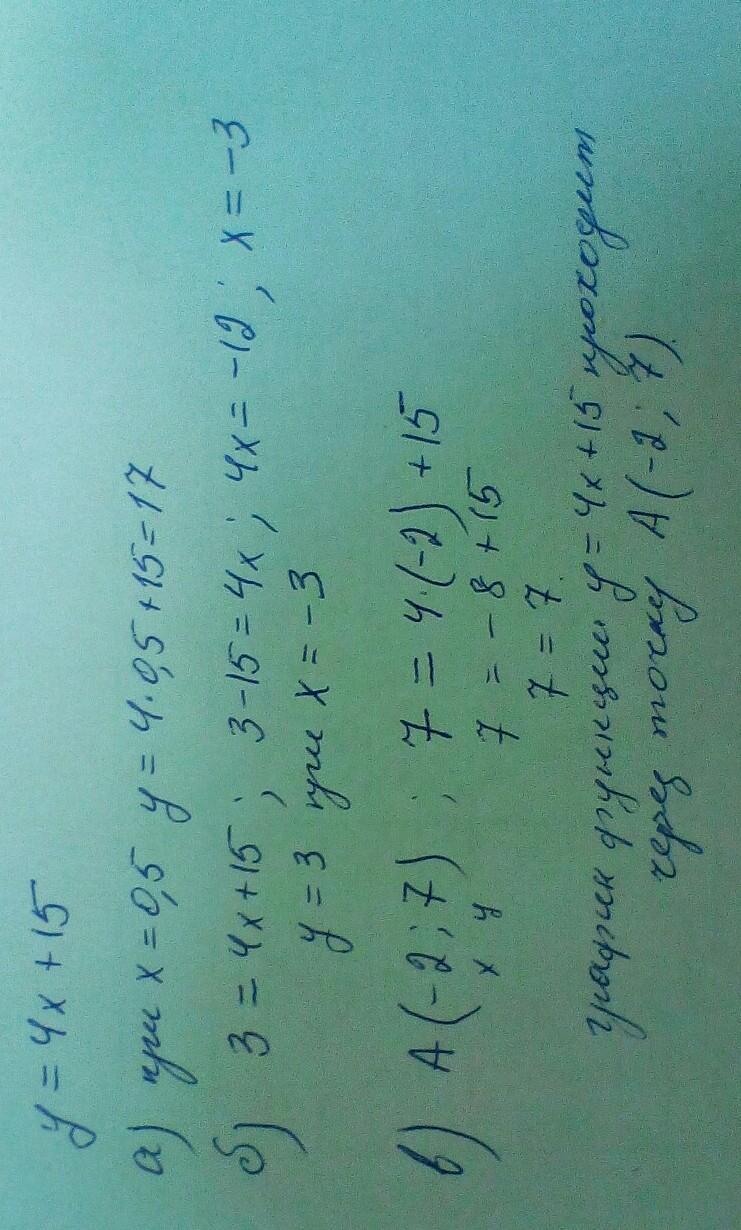 y = 4x + 15
а) при x = 0,5 y = 4·0,5+15=17
б) 3 = 4x+15 ; 3-15=4x ; 4x = -12 ; x = -3
y = 3 при x = -3
в) A(-2 ; 7) ; 7 = 4·(-2)+15
x y 7 = -8 +15
7 = 7.
график функции y = 4x+15 проходит
через точку A(-2; 7).